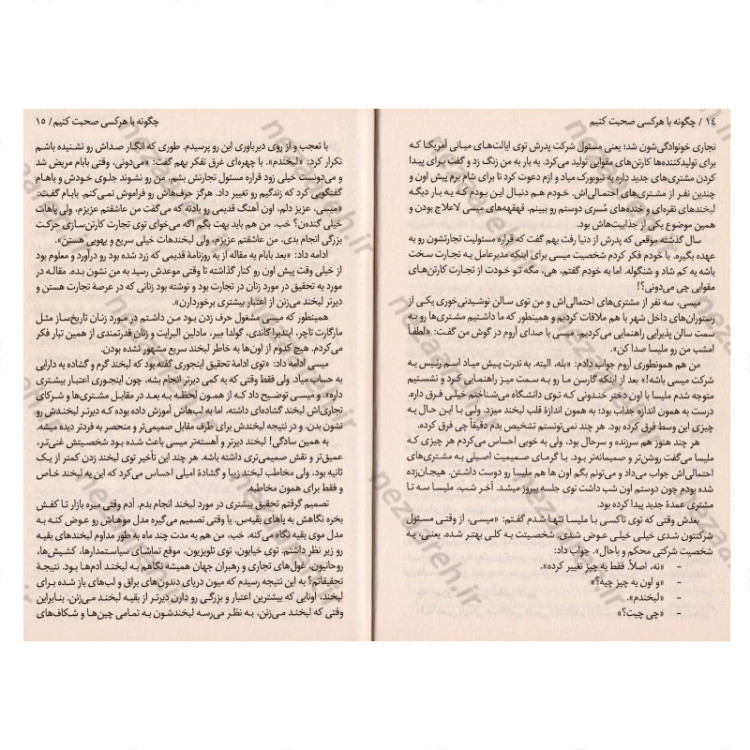 ١٤ / چگونه با هرکسی صحبت کنیم
تجاری خونوادگی‌شون شد؛ یعنی مسئول شرکت پدرش توی ایالت‌های میانی آمریکا که
برای تولیدکننده‌ها کارتن‌های مقوایی تولید می‌کرد. یه بار به من زنگ زد و گفت برای پیدا
کردن مشتری‌های جدید داره به نیویورک میاد و ازم دعوت کرد تا برای شام برم پیش اون و
چندین نفر از مشتری‌های احتمالی‌اش. خودم هم دنبال این بودم که یه بار دیگه
لبخندهای نقره‌ای و خنده‌های مُسری دوستم رو ببینم. قهقهه‌های میسی لاعلاج بودن و
همین موضوع یکی از جذابیت‌هاش بود.
سال گذشته موقعی که پدرش از دنیا رفت بهم گفت که قراره مسئولیت تجارتشون رو به
عهده بگیره. با خودم فکر کردم شخصیت میسی برای اینکه مدیرعامل یه تجارت سخت
باشه یه کم شاد و شنگوله. اما به خودم گفتم، هی، مگه تو خودت از تجارت کارتن‌های
مقوایی چی می‌دونی؟!
میسی، سه نفر از مشتری‌های احتمالی‌اش و من توی سالن نوشیدنی‌خوری یکی از
رستوران‌های داخل شهر با هم ملاقات کردیم و همینطور که ما داشتیم مشتری‌ها رو به
سمت سالن پذیرایی راهنمایی می‌کردیم، میسی با صدای آروم در گوش من گفت: «لطفاً
امشب من رو ملیسا صدا کن».
من هم همونطوری آروم جواب دادم: «بله، البته، به ندرت پیش میاد اسم رئیس یه
شرکت میسی باشه!» بعد از اینکه گارسن ما رو به سمت میز راهنمایی کرد و نشستیم
متوجه شدم ملیسا با اون دختر خندونی که توی دانشگاه می‌شناختم خیلی فرق داره.
درست به همون اندازه جذاب بود؛ به همون اندازهٔ قلب لبخند میزد. ولی با این حال یه
چیزی این وسط فرق کرده بود. هر چند نمی‌تونستم تشخیص بدم دقیقاً چی فرق کرده.
هر چند هنوز هم سرزنده و سرحال بود، ولی به خوبی احساس می‌کردم هر چیزی که
ملیسا می‌گفت روشن‌تر و صمیمانه‌تر بود. با گرمای صمیمیت اصیلی به مشتری‌های
احتمالی‌اش جواب می‌داد و می‌تونم بگم اون ها هم ملیسا رو دوست داشتن. هیجان‌زده
شده بودم چون دوستم اون شب داشت توی جلسه پیروز میشد. آخر شب، ملیسا سه تا
مشتری عمدهٔ جدید پیدا کرده بود.
بعدش وقتی که توی تاکسی با ملیسا تنها شدم گفتم: «میسی، از وقتی مسئول
شرکتتون شدی خیلی خیلی عوض شدی. شخصیتت به کلی بهتر شده، یعنی، یه
شخصیت شرکتی محکم و باحال». جواب داد:
- «نه، اصلاً. فقط یه چیز تغییر کرده».
- «و اون یه چیز چیه؟»
- «لبخندم».
- «چی چیت؟»
چگونه با هرکسی صحبت کنیم / ١٥
با تعجب و از روی دیرباوری این رو پرسیدم. طوری که انگار صداش رو نشنیده باشم
تکرار کرد: «لبخندم». با چهره‌ای غرق تفکر بهم گفت: «می‌دونی، وقتی بابام مریض شد
و می‌دونست خیلی زود قراره مسئول تجارتش بشم، من رو نشوند جلوی خودش و باهام
گفتگویی کرد که زندگیم رو تغییر داد. هرگز حرف‌هاش رو فراموش نمی‌کنم. بابام گفت:
«میسی، عزیز دلم، اون آهنگ قدیمی رو یادته که می‌گفت من عاشقتم عزیزم، ولی پاهات
خیلی گنده‌ن؟ خب، من هم باید بهت بگم اگه می‌خوای توی تجارت کارتن‌سازی حرکت
بزرگی انجام بدی، من عاشقتم عزیزم، ولی لبخندهات خیلی سریع و یهویی هستن».
ادامه داد: «بعد بابام یه مقاله از یه روزنامهٔ قدیمی که زرد شده بود رو درآورد و معلوم بود
از خیلی وقت پیش اون رو کنار گذاشته تا وقتی موعدش رسید به من نشون بده. مقاله در
مورد یه تحقیق در مورد زنان در تجارت بود و نوشته بود زنانی که در عرصهٔ تجارت هستن و
دیرتر لبخند می‌زنن از اعتبار بیشتری برخوردارن».
همینطور که میسی مشغول حرف زدن بود من داشتم در مورد زنان تاریخ‌ساز مثل
مارگارت تاچر، ایندیرا گاندی، گولدا میر، مادلین آلبرایت و زنان قدرتمندی از همین تبار فکر
می‌کردم. هیچ کدوم از اون‌ها به خاطر لبخند سریع مشهور نشده بودن.
میسی ادامه داد: «توی ادامهٔ تحقیق اینجوری گفته بود که لبخند گرم و گشاده یه دارایی
به حساب میاد. ولی فقط وقتی که یه کمی دیرتر انجام بشه، چون اینجوری اعتبار بیشتری
داره». و میسی توضیح داد که از همون لحظه به بعد در مقابل مشتری‌ها و شرکای
تجاری‌اش لبخند گشاده‌ای داشته، اما به لب‌هاش آموزش داده بود که دیرتر لبخندش رو
نشون بدن. و در نتیجه لبخندش برای طرف مقابل صمیمی‌تر و منحصر به فردتر دیده میشه.
به همین سادگی! لبخند دیرتر و آهسته‌تر میسی باعث شده بود شخصیتش غنی‌تر،
عمیق‌تر و نقش صمیمی‌تری داشته باشه. هر چند این تأخیر توی لبخند زدن کمتر از یک
ثانیه بود، ولی مخاطب لبخند زیبا و گشادهٔ اصیلی احساس می‌کرد که این یه لبخند خاص
و فقط برای همون مخاطبه.
تصمیم گرفتم تحقیق بیشتری در مورد لبخند انجام بدم. آدم وقتی میره بازار تا کفش
بخره نگاهش به پاهای بقیه‌س. یا وقتی تصمیم می‌گیره مدل موهاش رو عوض کنه به
مدل موی بقیه نگاه می‌کنه. خب، من هم به مدت چند ماه به طور مداوم لبخندهای بقیه
رو زیر نظر داشتم. توی خیابون، توی تلویزیون، موقع تماشای سیاستمدارها، کشیش‌ها،
روحانیون، غول‌های تجاری و رهبران جهان همیشه نگاهم به لبخند آدم‌ها بود. نتیجهٔ
تحقیقاتم؟ به این نتیجه رسیدم که میون دریای دندون‌های براق و لب‌های باز شده برای
لبخند، اونایی که بیشترین اعتبار و بزرگی رو دارن دیرتر از بقیه لبخند می‌زنن. بنابراین
وقتی که لبخند می‌زنن، به نظر می‌رسه لبخندشون به تمامی چین‌ها و شکاف‌های
nezzareh.ir